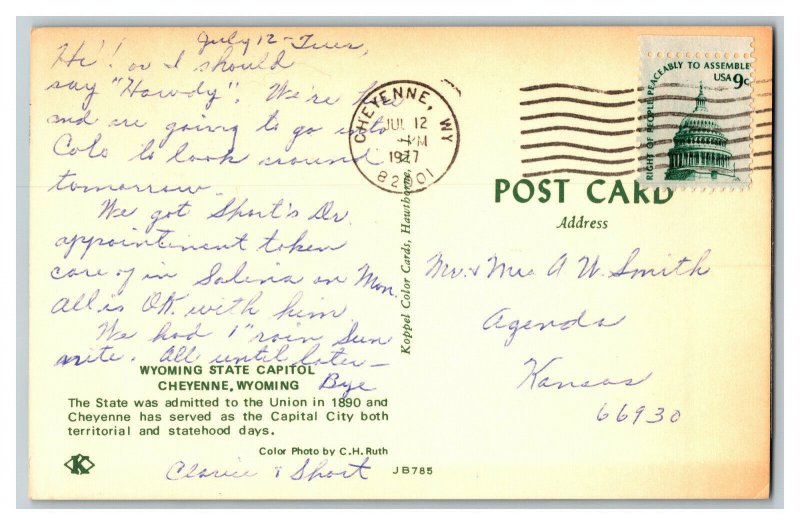 July 12 - Tues,
Hi! or I should
say "Howdy". We're here
and are going to go into
Colo to look around
tomorrow.
We got Short's Dr.
appointment taken
care of in Salina on Mon.
All is OK with him
We had 1" rain Sun
nite. All until later—
Bye
WYOMING STATE CAPITOL
CHEYENNE, WYOMING
The State was admitted to the Union in 1890 and
Cheyenne has served as the Capital City both
territorial and statehood days.
Color Photo by C.H. Ruth
K
JB785
Clarice & Short
Koppel Color Cards, Hawthorne,
CHEYENNE, WY
JUL 12
PM
1977
82001
RIGHT OF PEOPLE PEACEABLY TO ASSEMBLE
USA 9c
POST CARD
Address
Mr. & Mrs A W. Smith
Agenda
Kansas
66930